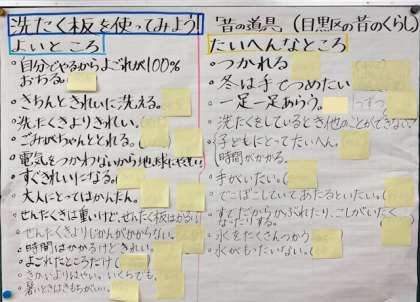 洗たく板を使ってみよう
「昔の道具」(目黒区の昔のくらし)
よいところ
○自分でやるからよごれが100%
おちる。
○きちんときれいに洗える。
○洗たくきよりきれい。
○ごみがちゃんととれる。
○電気をつかわないから地球にやさしい
○すぐきれいになる。
○大人にとってはかんたん。
○せんたくきは重いけど、せんたく板はかるい
○せんたくきよりじかんがかからない。
○時間はかかるけどきれい。
○よごれたところだけ
○きかいよりはやい。いくらでも。
○暑いときはきもちがいい。
たいへんなところ
○つかれる
○冬は手でつめたい
○一足一足あらう。
○洗たくをしているとき他のことができない
○子どもにとってたいへん。
(時間がかかる。
○手がいたい。
○でこぼこしていてあたるといたい。
○すてたからかぶれたり、こしがいたく
なったりする。
○水をたくさんつかう
○水がもったいない。